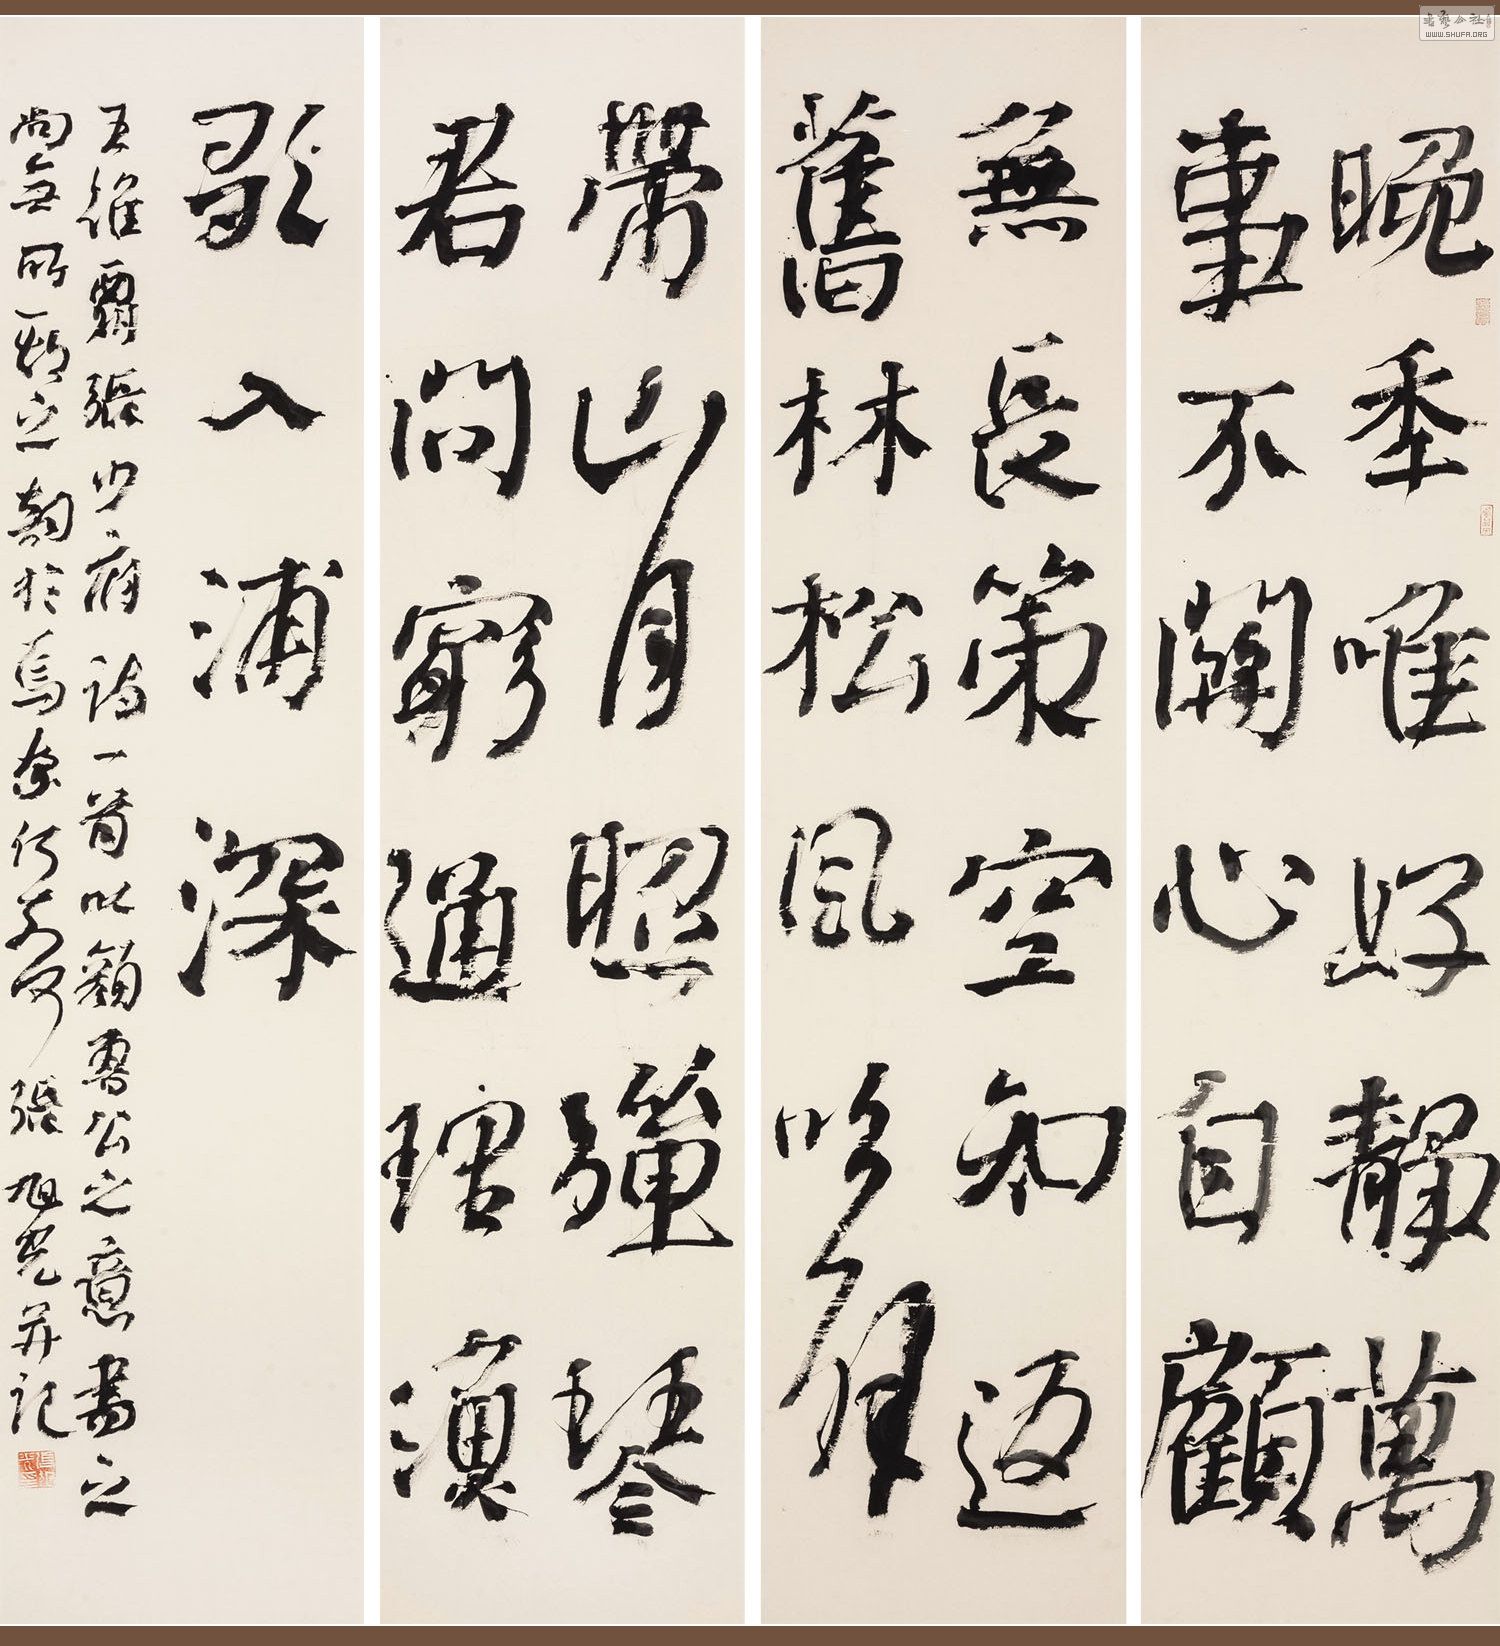 晚年唯好靜萬
事不關心自顧
無長策空知返
舊林松風吹解
帶山月照彈琴
君問窮通理漁
歌入浦深
王維酬張少府詩一首以顏魯公之意書之
尚無所之韵於焉奈何奈何張旭光并記
書藝公社
WWW.SHUFA.ORG